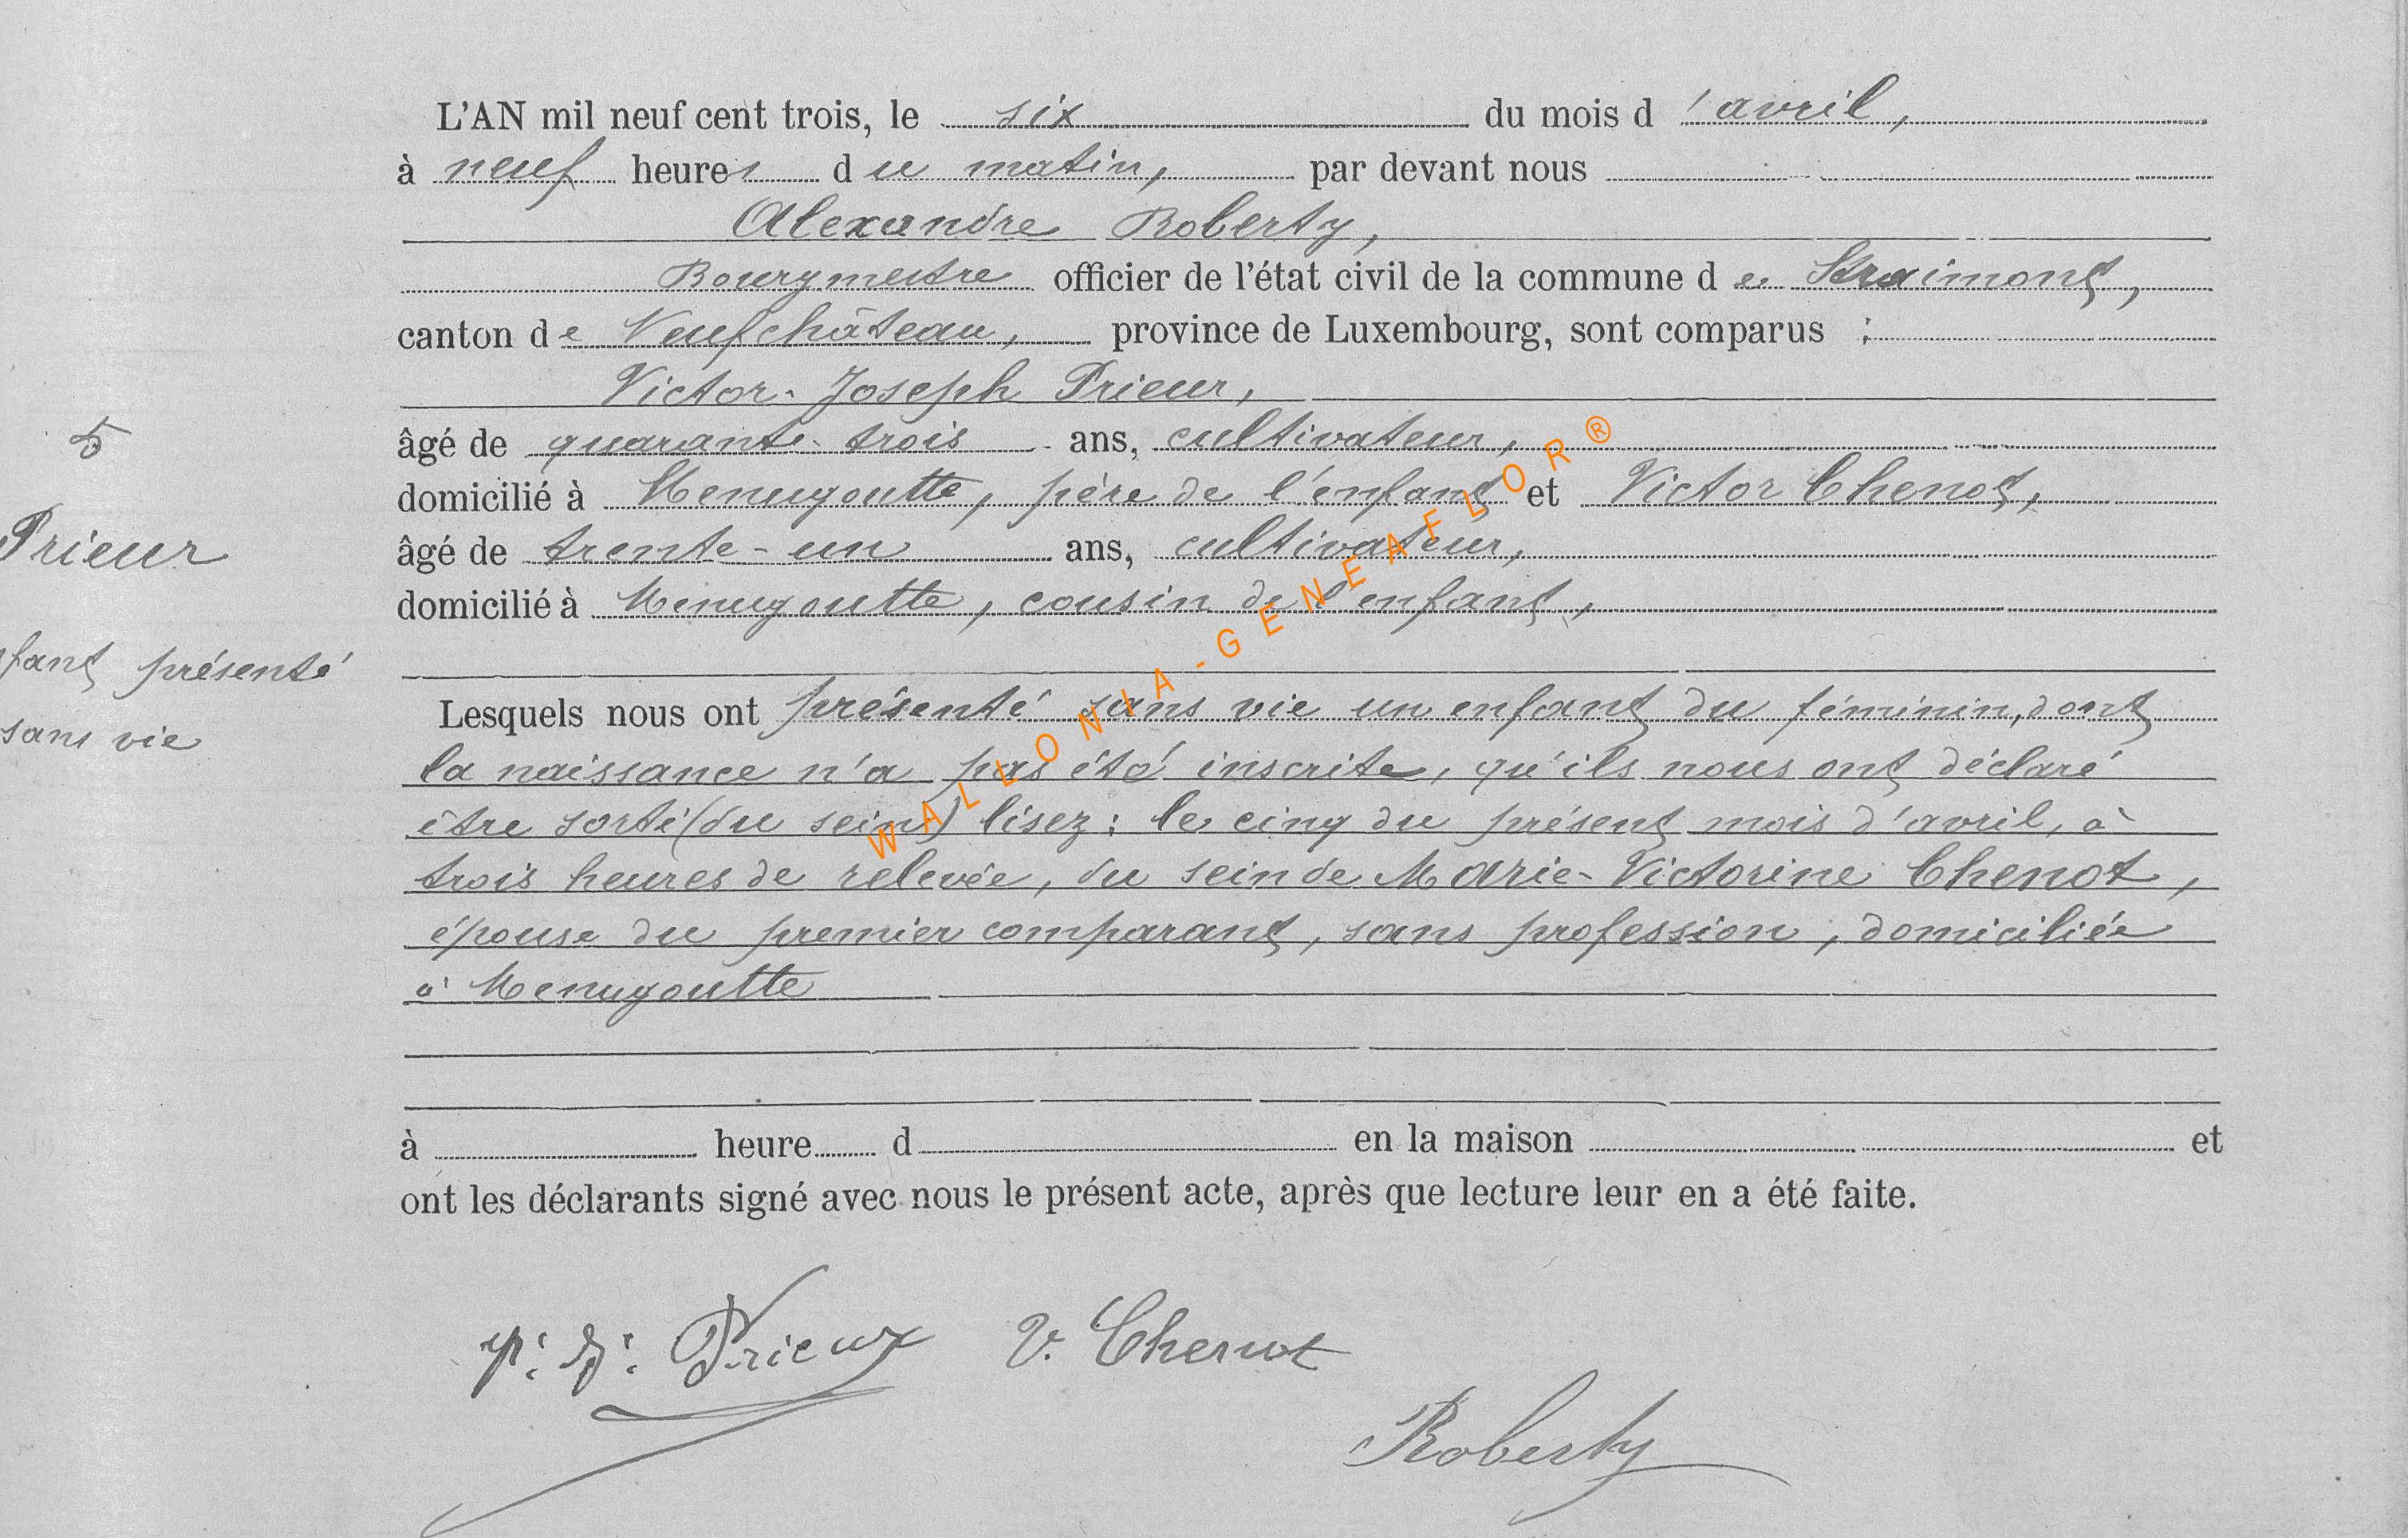 L'AN mil neuf cent trois, le six du mois d'avril,
à neuf heures du matin, par devant nous
Alexandre Roberty,
Bourgmestre officier de l'état civil de la commune de Straimont,
canton de Neufchâteau, province de Luxembourg, sont comparus :
Victor-Joseph Prieur,
5
âgé de quarante-trois ans, cultivateur,
domicilié à Menugoutte, père de l'enfant et Victor Chenot,
Prieur
âgé de trente-un ans, cultivateur,
domicilié à Menugoutte, cousin de l'enfant,
fant présenté
sans vie
Lesquels nous ont présenté sans vie un enfant du féminin, dont
la naissance n'a pas été inscrite, qu'ils nous ont déclaré
être sorti (du sein) lisez : le cinq du présent mois d'avril, à
trois heures de relevée, du sein de Marie-Victorine Chenot,
épouse du premier comparant, sans profession, domiciliée
à Menugoutte
à heure d en la maison et
ont les déclarants signé avec nous le présent acte, après que lecture leur en a été faite.
Prieur V. Chenot
Roberty
WALLONIA-GENEAFLOR®